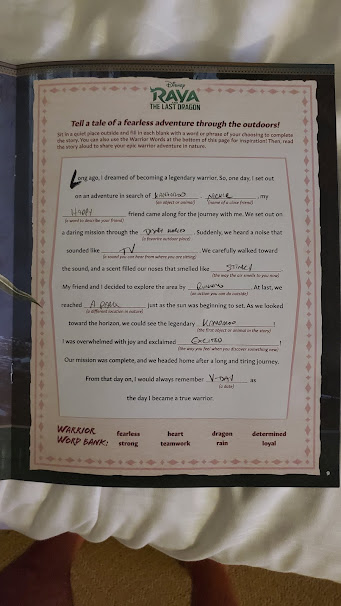 Disney
RAYA
AND
THE LAST DRAGON
Tell a tale of a fearless adventure through the outdoors!
Sit in a quiet place outside and fill in each blank with a word or phrase of your choosing to complete
the story. You can also use the Warrior Words at the bottom of this page for inspiration! Then, read
the story aloud to share your epic warrior adventure in nature.
Long ago, I dreamed of becoming a legendary warrior. So, one day, I set out
on an adventure in search of , my
(an object or animal) (name of a close friend)
HAPPY friend came along for the journey with me. We set out on
(a word to describe your friend)
a daring mission through the . Suddenly, we heard a noise that
(a favorite outdoor place)
sounded like TV . We carefully walked toward
(a sound you can hear from where you are sitting)
the sound, and a scent filled our noses that smelled like .
(the way the air smells to you now)
My friend and I decided to explore the area by Running . At last, we
(an action you can do outside)
reached just as the sun was beginning to set. As we looked
(a different location in nature)
toward the horizon, we could see the legendary !
(the first object or animal in the story)
I was overwhelmed with joy and exclaimed EXCITED !
(the way you feel when you discover something new)
Our mission was complete, and we headed home after a long and tiring journey.
From that day on, I would always remember V-DAY as
(a date)
the day I became a true warrior.
WARRIOR WORD BANK:
fearless heart dragon determined
strong teamwork rain loyal